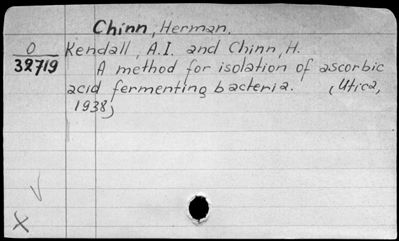 Chinn, Herman.
O Kendall, A.I. and Chinn, H.
32719 A method for isolation of ascorbic
acid fermenting bacteria. (Utica,
1938)